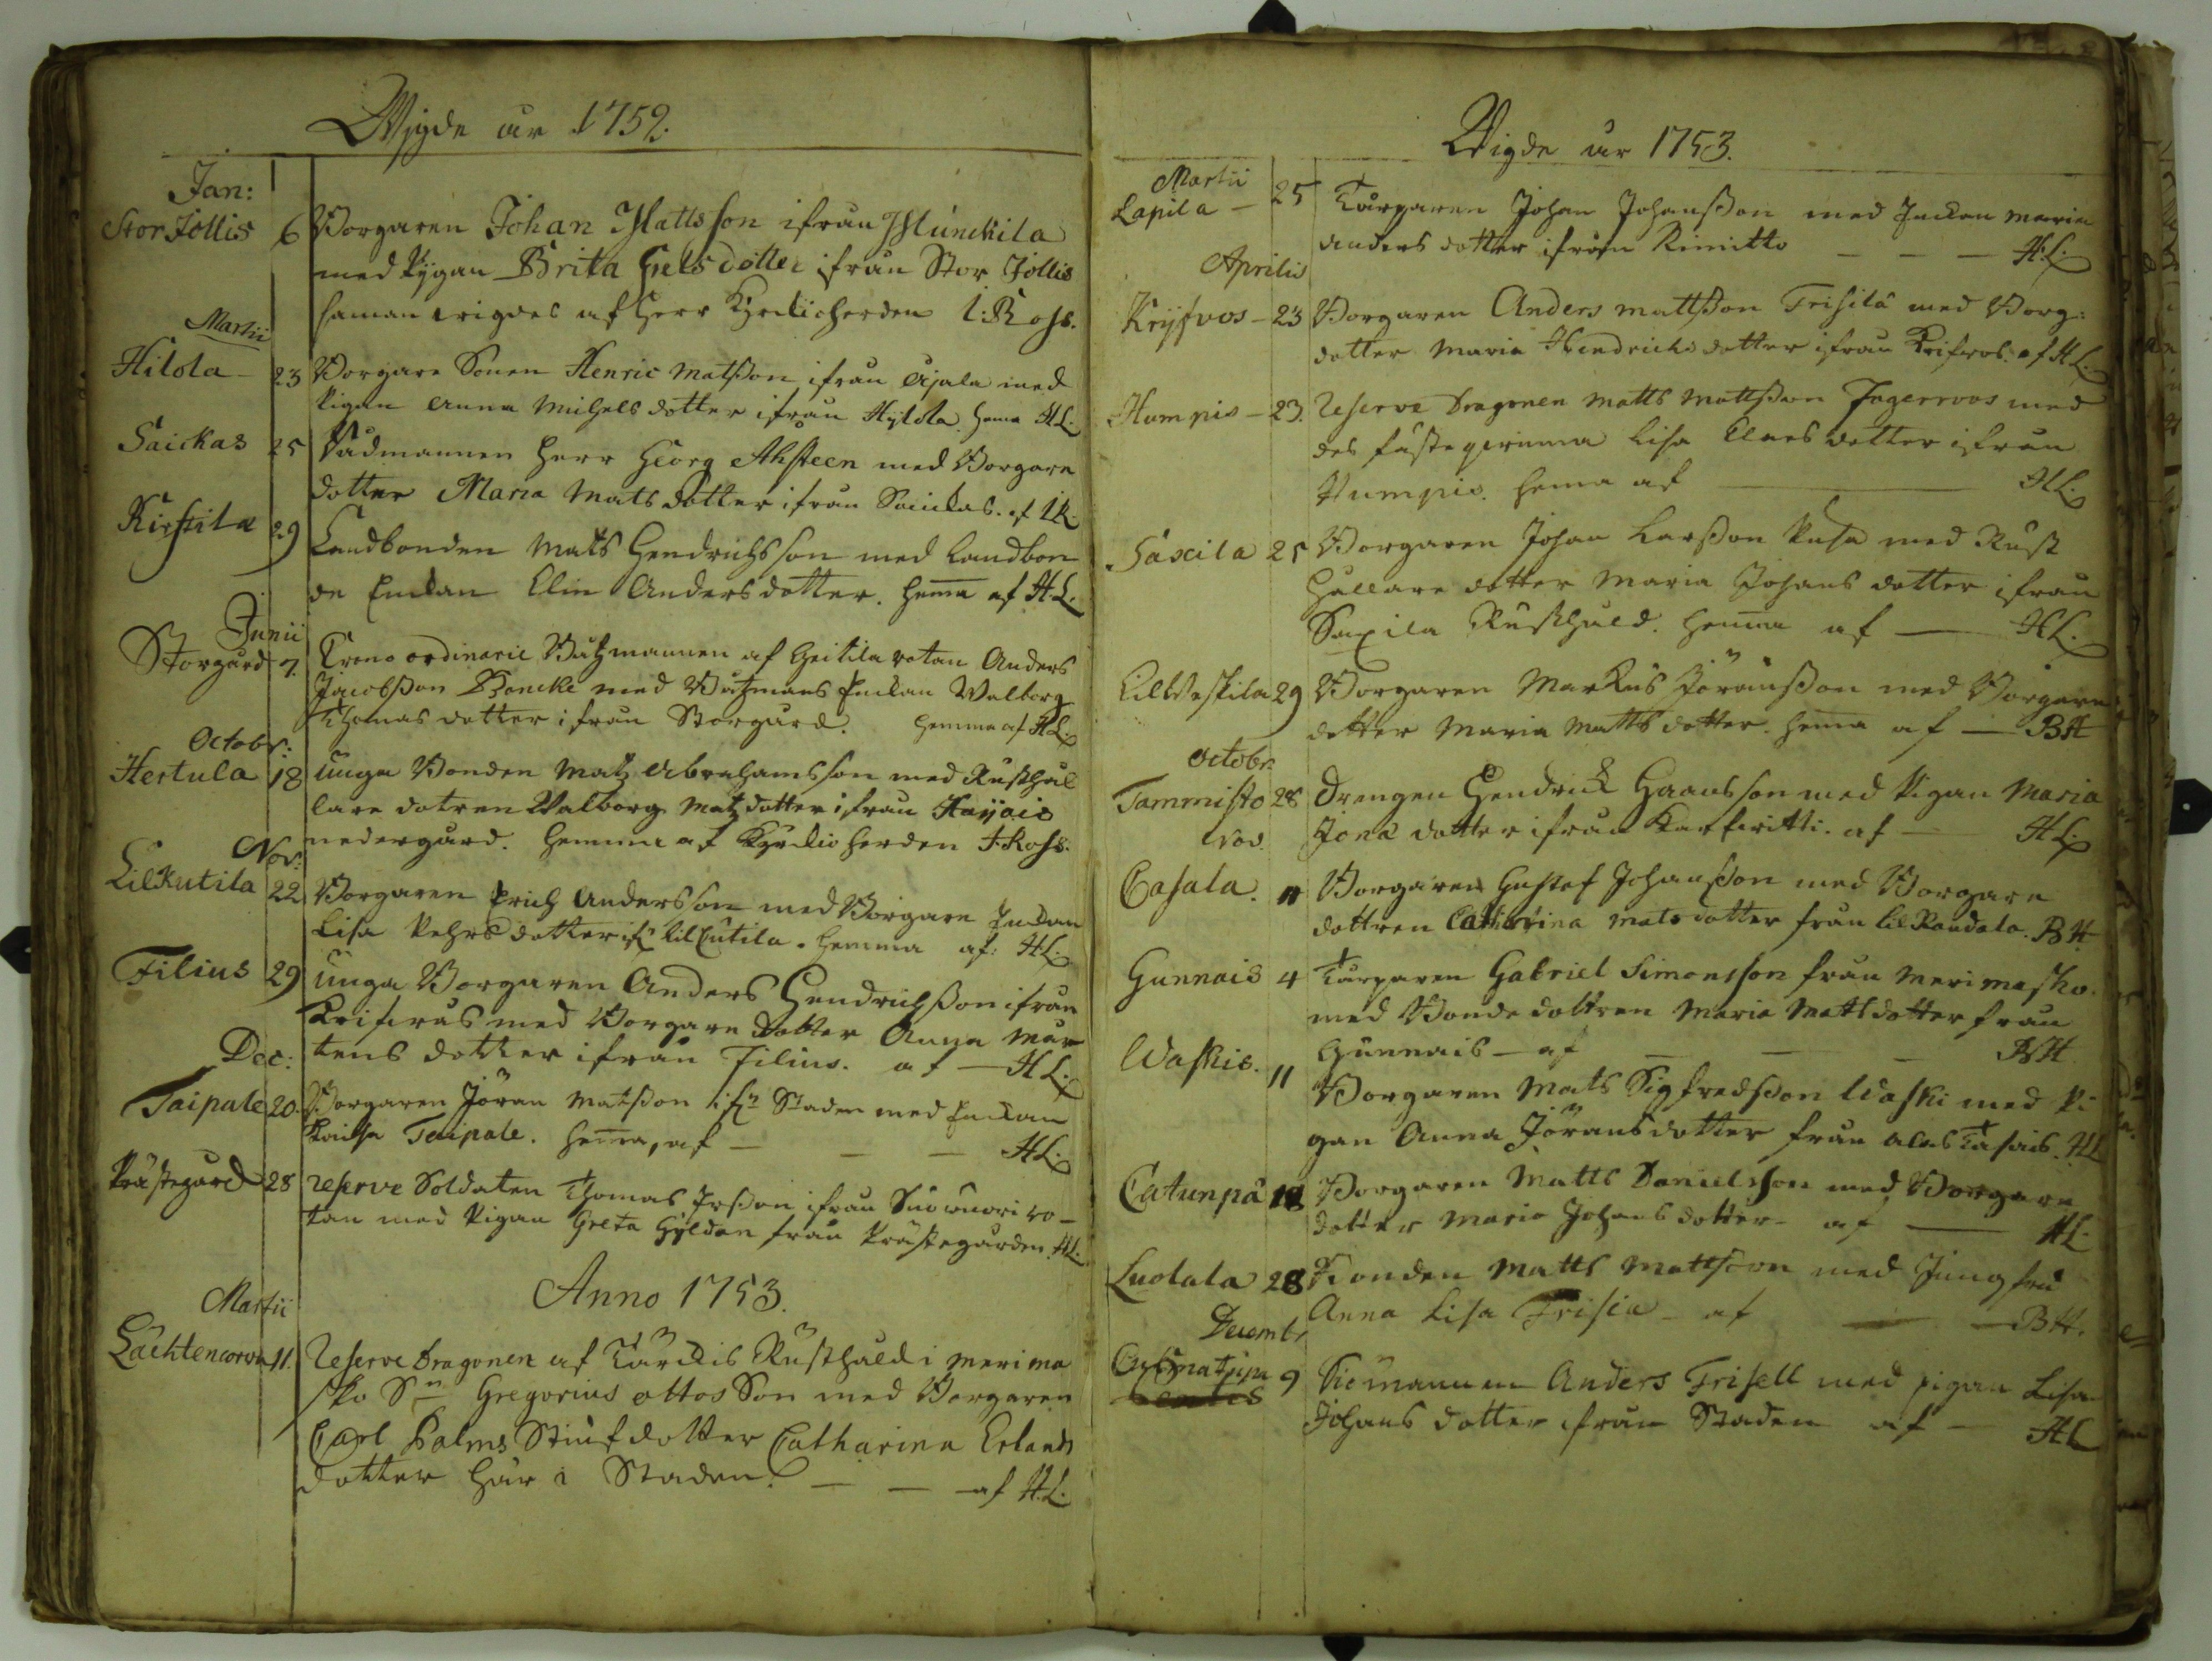 Wigde år 1752.
Jan:
Stor Jollis 6 Borgaren Johan Mattsson ifrån Munckila
med Pygan Brita Gels dotter ifrån Stor Jollis
samanwigdes af Herr Kyrkioherden I: Ross.
Martii
Hilola 23 Borgare Sonen Henric Matsson ifrån Ajala med
Pigan Anna Michels dotter ifrån Hylola. hema HL.
Saickas 25 Rådmannen Herr Georg Ahsteen med Borgare
dotter Maria Mats dotter ifrån Saickas. af I.R.
Kirstila 29 Landbonden Mats Hendrichsson med Landbon
de Enckan Elin Anders dotter. hema af HL.
Junii
Storgård 7. Crono ordinarie Båtzmannen af Heikila rotan Anders
Jacobsson Boncke med Båtzmans Enckan Walborg
Thomas dotter ifrån Storgård. hemma af HL.
Octobr:
Hertula 18 unga Bonden Matz Abrahamsson med Rusthål
lare dotren Walborg Matz dotter ifrån Haijais
nedergård. hemma af Kyrkioherden I. Ross.
Nov:
Lilkutila 22 Borgaren Erich Andersson med Borgare Enckan
Lisa Pehrs dotter ifrn Lilkutila. hemma af: HL.
Filius 29 unga Borgaren Anders Hendrichsson ifrån
Krifwås med Borgare dotter Anna Mår
tens dotter ifrån Filius. af — HL.
Dec:
Taipale 20. Borgaren Jöran Matsson ifrn Staden med Enckan
Taipale. hema, af — — HL.
Prästegård 28 reserve Soldaten Thomas Ersson ifrån ro-
tan med Pigan Greta Gyldan från Prästegården. HL.
Anno 1753.
Martii
Lächtencorva 11. Reserve Dragonen af Kärckis Rusthåld i Merima
sko Sn Gregorius ottos Son med Borgaren
Carl Palms Stiufdotter Catharina Erlands
dotter här i Staden. — — af HL.
Wigde år 1753.
Martii
Lapila — 25 Torparen Johan Johansson med Enckan Maria
Anders dotter ifrån Rimitto — — — HL.
Aprilis
Kryfvos — 23 Borgaren Anders Mattsson Frisilä med Borg:
dotter Maria Hendrichs dotter ifrån Krifwos. af HL.
Humpis — 23. Reserve Dragonen Matts Mattsson Jagerroos med
des fästeqwinna Lisa Claes dotter ifrån
Humpis. hema af — HL.
Saxila 25 Borgaren Johan Larsson med Rust
hållare dotter Maria Johans dotter ifrån
Saxila Rusthåld. hemma af — HL.
LilWeskila 29 Borgaren Markus Jöransson med Borgare
dotter Maria Matts dotter. hema af — BH
Octobr:
Tammisto 28 Drengen Hendrick Hansson med Pigan Maria
Jöns dotter ifrån Karfwitti. af — HL.
Nov.
Casala. 11 Borgaren Gustaf Johansson med Borgare
dottren Catharina Matsdotter från Lil Randala. BH
Gunnais 4 Torparen Gabriel Simonsson från Merimasko.
med Bonde dottren Maria Matts dotter från
Gunnais — af — — — BH.
Waskis. 11 Borgaren Mats Sigfredsson Waski med Pi
gan Anna Jöransdotter från HL
Catunpä 18 Borgaren Matts Danielsson med Borgare
dotter Maria Johans dotter — af — HL.
Luolala 28 Bonden Matts Mattsson med Jungfru
Anna Lisa Frisia — af — — BH.
Decembr
9 Tiomannen Anders Frisell med pigan Lisa
Johans dotter ifrån Staden af — HL